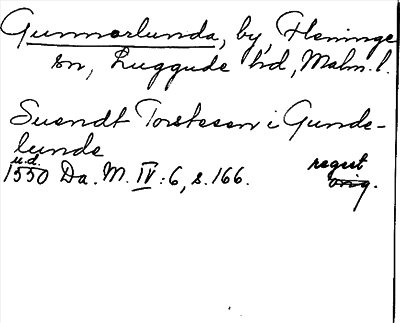 Gunnarlunda, by, Fleninge
sn, Luggude hd, Malm. l.
Suendt Torstessen i Gunde-
lunde
u.d.
1550 Da. M. IV: 6, s. 166.
regest
orig.